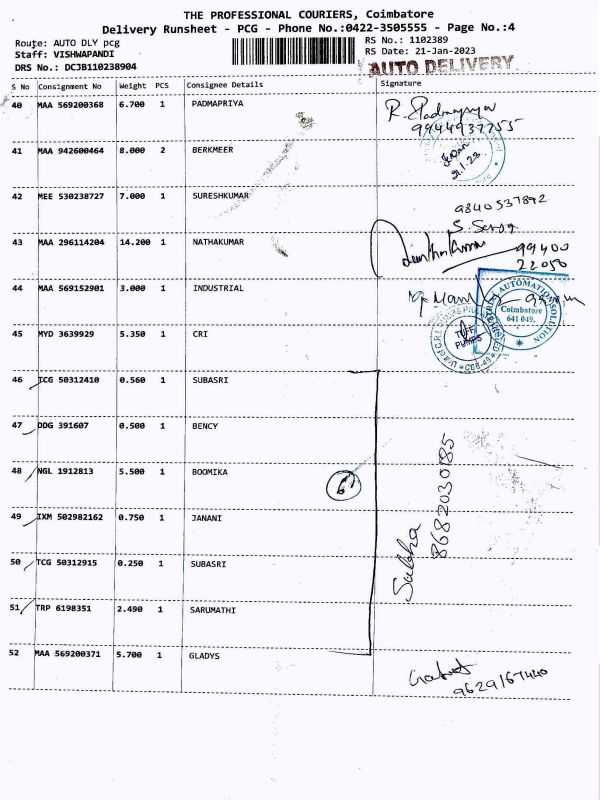 THE PROFESSIONAL COURIERS, Coimbatore
Delivery Runsheet - PCG - Phone No.:0422-3505555 - Page No.:4
Route: AUTO DLY pcg
Staff: VISHWAPANDI
DRS No.: DCJB110238904
RS No.: 1102389
RS Date: 21-Jan-2023
AUTO DELIVERY
S No Consignment No Weight PCS Consignee Details Signature
40 MAA 569200368 6.700 1 PADMAPRIYA
R. Padmapriya
9944937755
41 MAA 942600464 8.000 2 BERKMEER
21.1.23
42 MEE 530238727 7.000 1 SURESHKUMAR
9840537892
43 MAA 296114204 14.200 1 NATHAKUMAR
99400
22050
44 MAA 569152901 3.000 1 INDUSTRIAL
AUTOMATION SOLUTION
Coimbatore
641 049.
45 MYD 3639929 5.350 1 CRI
PUMPS
CBE-49
46 TCG 50312410 0.560 1 SUBASRI
47 DDG 391607 0.500 1 BENCY
48 NGL 1912813 5.500 1 BOOMIKA
6
49 IXM 502982162 0.750 1 JANANI
50 TCG 50312915 0.250 1 SUBASRI
51 TRP 6198351 2.490 1 SARUMATHI
Subha
8682030185
52 MAA 569200371 5.700 1 GLADYS
9629167440